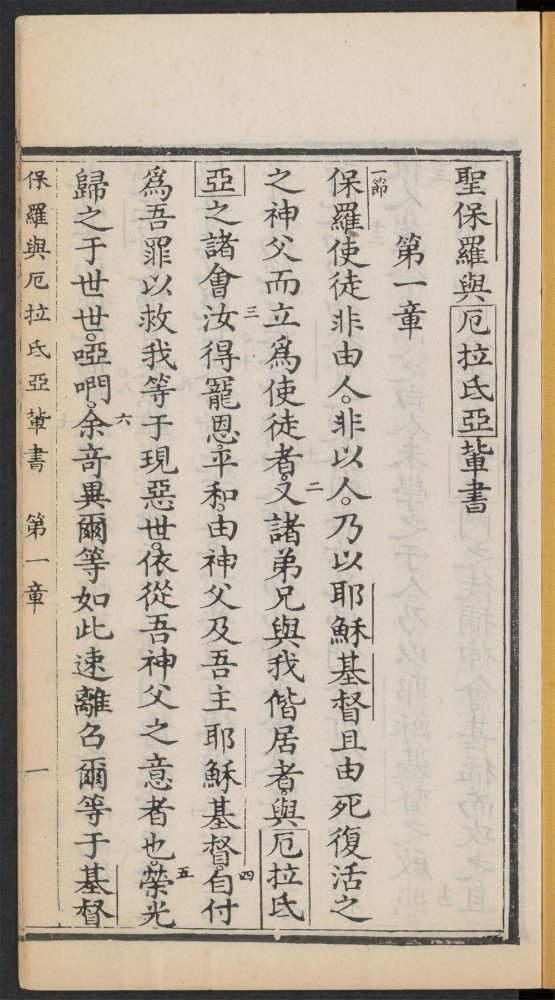 聖保羅與厄拉氏亞軰書
第一章
一節
保羅使徒非由人。非以人。乃以耶穌基督且由死復活之
之神父而立爲使徒者。二又諸弟兄與我偕居者。與厄拉氏
亞之諸會三汝得寵恩。平和。由神父及吾主耶穌基督。四自付
爲吾罪以救我等于現惡世。依從吾神父之意者也。五榮光
歸之于世世。啞們。六余竒異爾等如此速離召爾等于基督
保羅與厄拉氏亞軰書 第一章 一